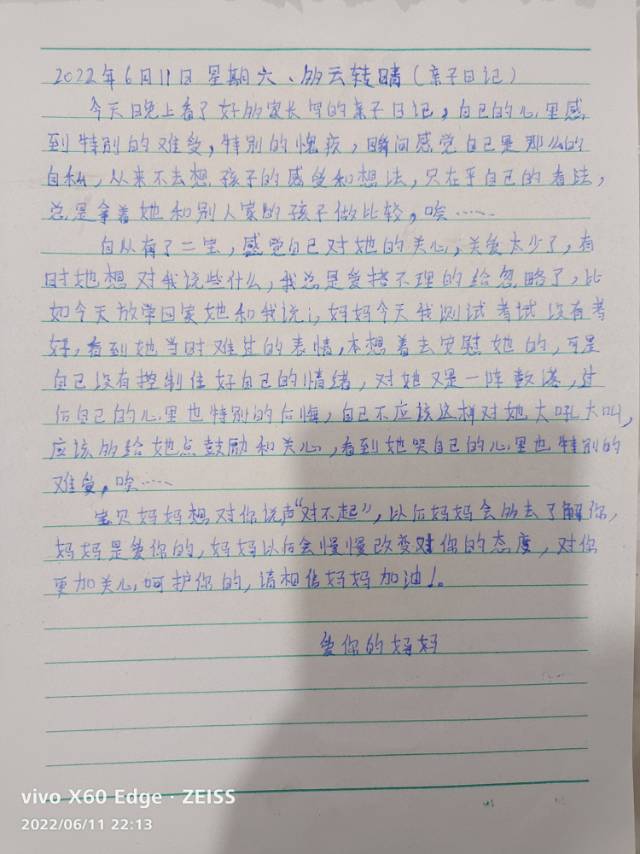 2022年6月11日 星期六、多云转晴(亲子日记)
今天日晚上看了好多家长写的亲子日记,自己的心里感
到特别的难受,特别的愧疚,瞬间感觉自己是那么的
自私,从来不去想孩子的感受和想法,只在乎自己的看法,
总是拿着她和别人家的孩子做比较,唉……
自从有了二宝,感觉自己对她的关心,关爱太少了,有
时她想对我说些什么,我总是爱搭不理的给忽略了,比
如今天放学回家她和我说:妈妈今天我测试考试没有考
好,看到她当时难过的表情,本想着去安慰她的,可是
自己没有控制住好自己的情绪,对她又是一阵数落,过
后自己的心里也特别的后悔,自己不应该这样对她大吼大叫,
应该多给她点鼓励和关心,看到她哭自己的心里也特别的
难受,唉……
宝贝妈妈想对你说声“对不起”,以后妈妈会多去了解你,
妈妈是爱你的,妈妈以后会慢慢改变对你的态度,对你
更加关心呵护你的,请相信妈妈加油!。
爱你的妈妈
vivo X60 Edge · ZEISS
2022/06/11 22:13